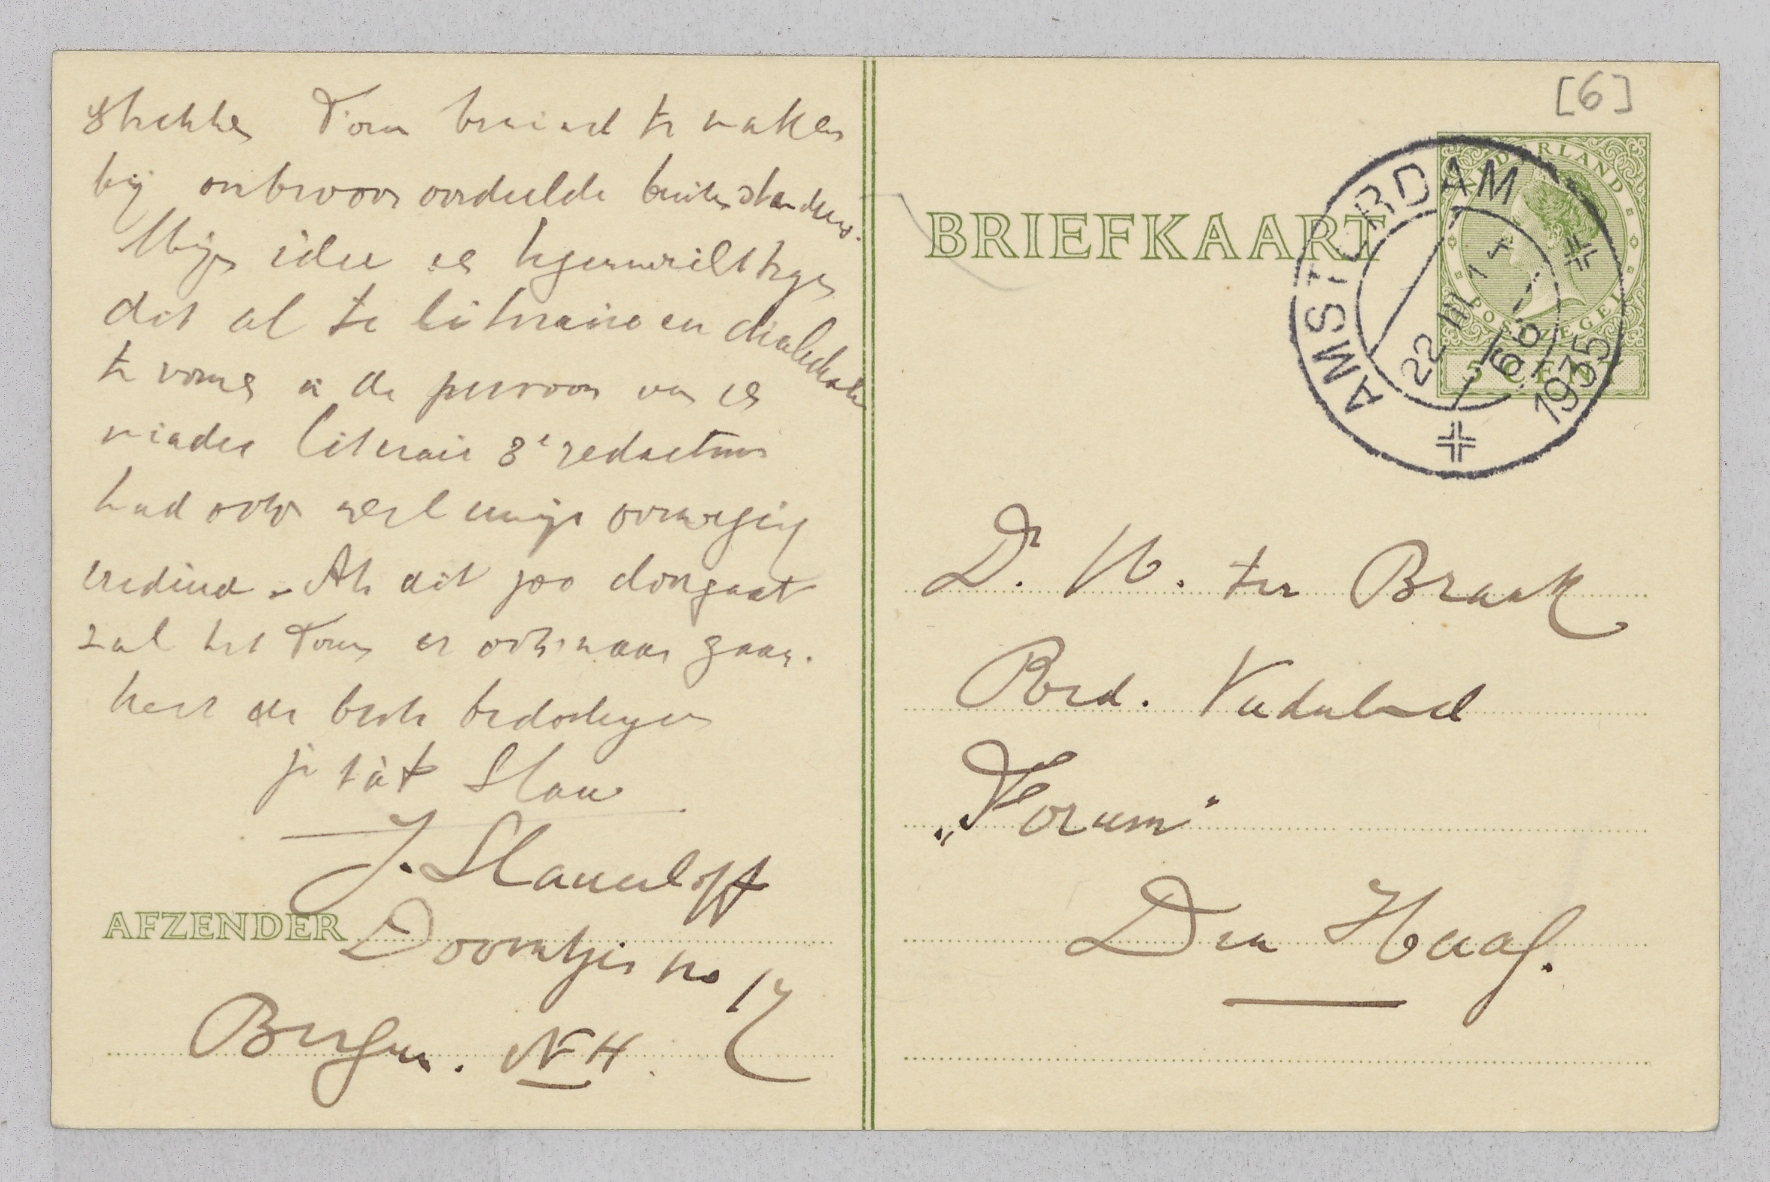 strekken Forum bemind te maken
bij onbevooroordeelde buitenstanders.
Mijn idee een tegenwicht tegen
dit al te literaire en dialectische
te vormen in de persoon van een
minder literair 3e redacteur
had ook wel eenige overweging
verdiend. Als dit zoo doorgaat
zal het Forum er ook naar gaan.
heel de beste bedoelingen
je tàt Slau
J. Slauerhoff
AFZENDER Doorntjes no 17
Bergen. NH.
[6]
BRIEFKAART
NEDERLAND
POSTZEGEL
5 CENT
AMSTERDAM
22 III 17
1935
Dr. M. ter Braak
Red. Vaderland
„Forum"
Den Haag.